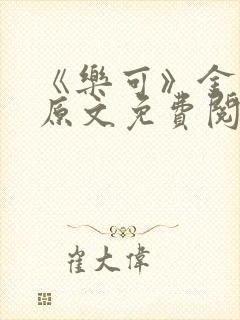 《樂可》金
原文免費閱
崔大偉